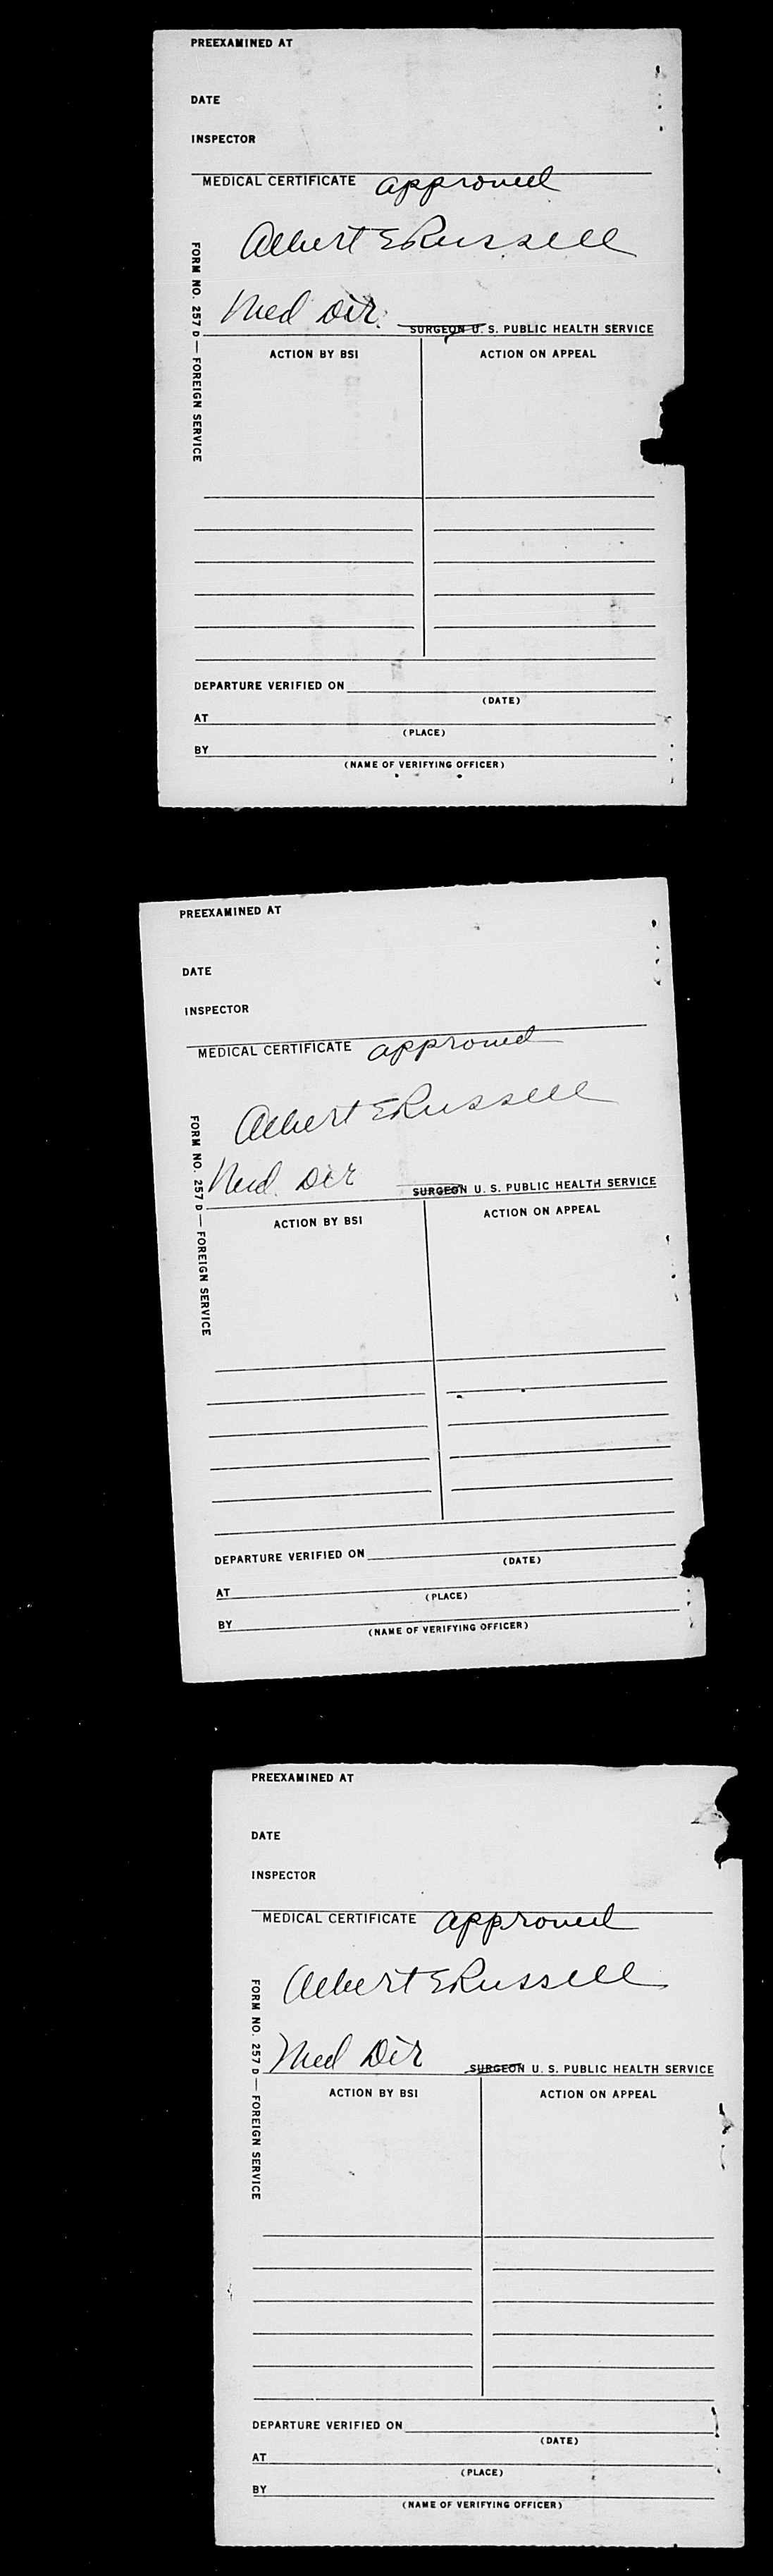 PREEXAMINED AT
DATE
INSPECTOR
MEDICAL CERTIFICATE approved
Albert E Russell
Med Dir.
SURGEON U. S. PUBLIC HEALTH SERVICE
FORM NO. 257 D — FOREIGN SERVICE
ACTION BY BSI
ACTION ON APPEAL
DEPARTURE VERIFIED ON
(DATE)
AT
(PLACE)
BY
(NAME OF VERIFYING OFFICER)
PREEXAMINED AT
DATE
INSPECTOR
MEDICAL CERTIFICATE approved
Albert E Russell
Med. Dir
SURGEON U. S. PUBLIC HEALTH SERVICE
FORM NO. 257 D — FOREIGN SERVICE
ACTION BY BSI
ACTION ON APPEAL
DEPARTURE VERIFIED ON
(DATE)
AT
(PLACE)
BY
(NAME OF VERIFYING OFFICER)
PREEXAMINED AT
DATE
INSPECTOR
MEDICAL CERTIFICATE approved
Albert E Russell
Med Dir
SURGEON U. S. PUBLIC HEALTH SERVICE
FORM NO. 257 D — FOREIGN SERVICE
ACTION BY BSI
ACTION ON APPEAL
DEPARTURE VERIFIED ON
(DATE)
AT
(PLACE)
BY
(NAME OF VERIFYING OFFICER)